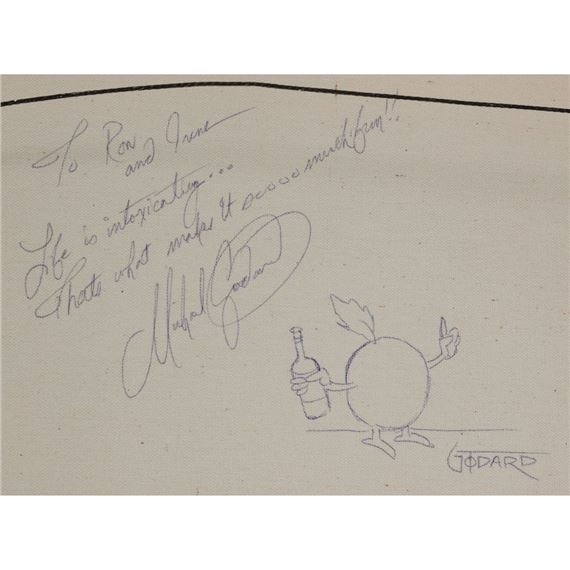 To Ron
and Irene
Life is intoxicating...
That's what makes it sooooo much fun!!
Michael Godard
GODARD